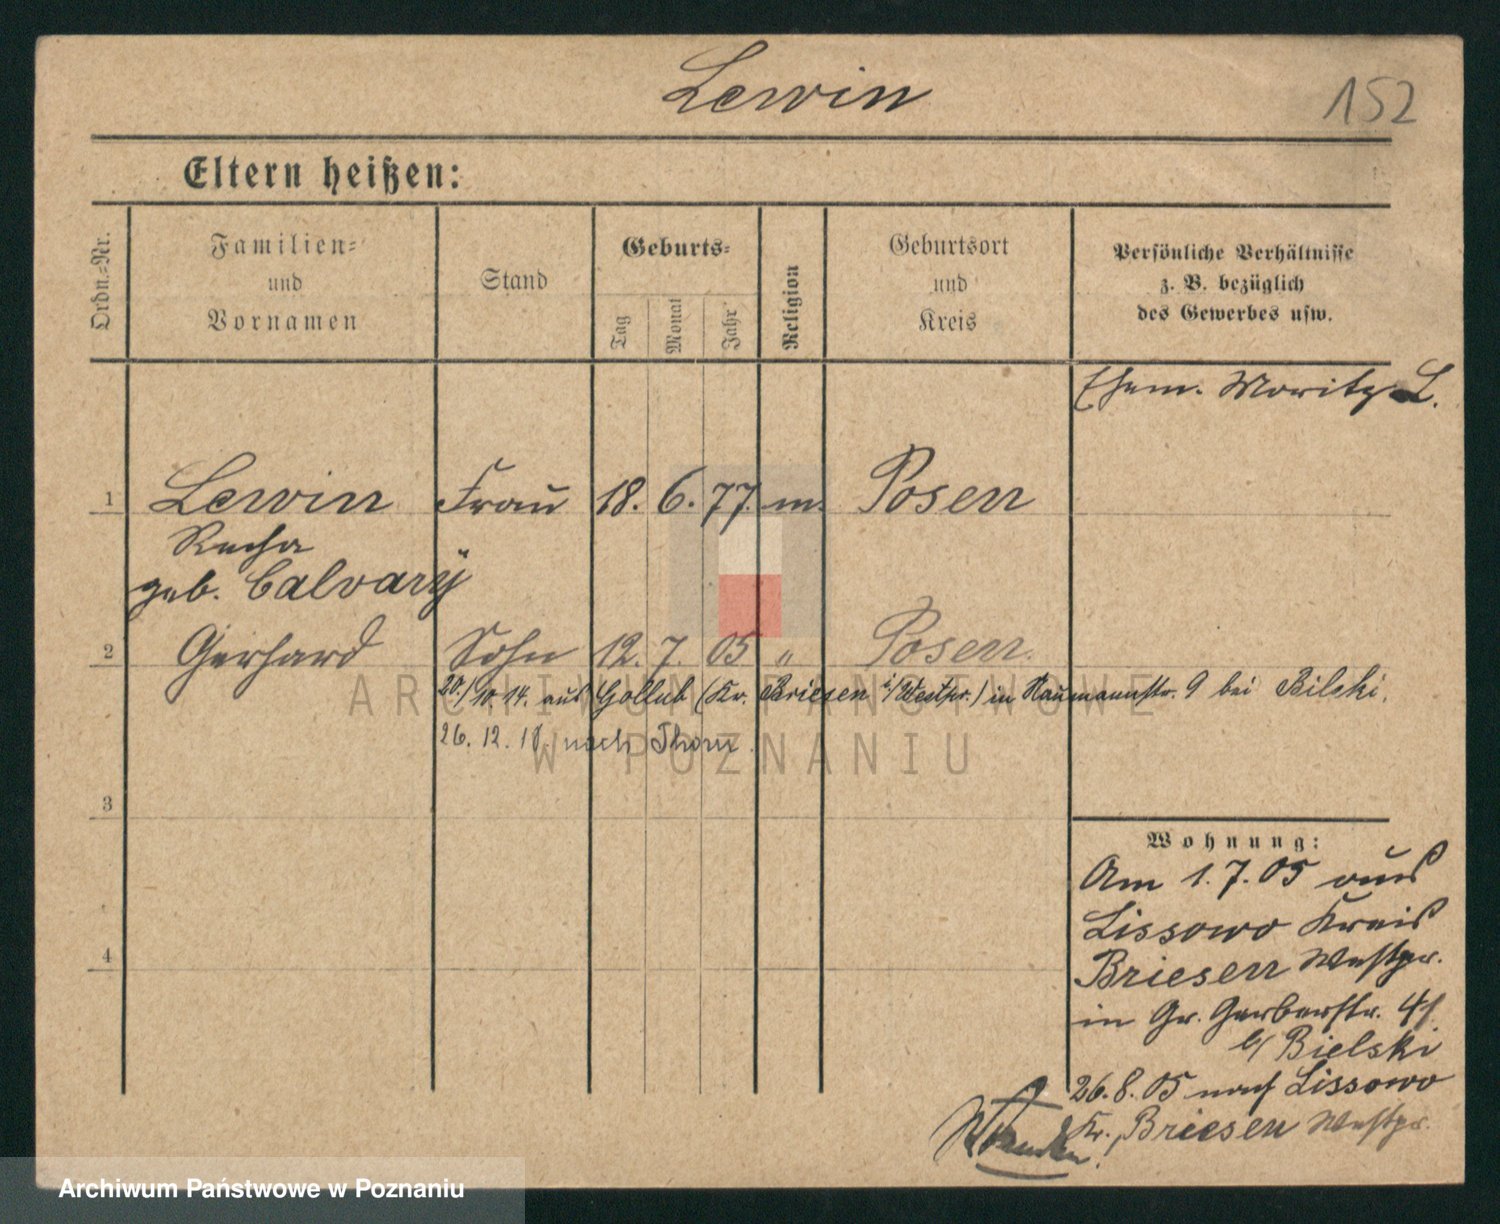 Lewin
152
Eltern heißen:
Ordn.-Nr.
Familien- und Vornamen
Stand
Geburts-
Tag
Monat
Jahr
Religion
Geburtsort und Kreis
Persönliche Verhältnisse
z. B. bezüglich
des Gewerbes usw.
Ehem. Moritz L.
1 Lewin Frau 18. 6. 77. m. Posen
Recha
geb. Calvary
2 Gerhard Sohn 12. 7. 05 " Posen.
20./10.14. aus Gollub (Kr. Briesen i/Westpr.) in Naumannstr. 9 bei Bilski.
26. 12. 18 nach Thorn.
3
4
Wohnung:
Am 1.7.05 aus
Lissowo Kreis
Briesen Westpr.
in Gr. Gerberstr. 41
b/ Bielski
26.8.05 nach Lissowo
Kr. Briesen Westpr.
ARCHIWUM PAŃSTWOWE
W POZNANIU
Archiwum Państwowe w Poznaniu